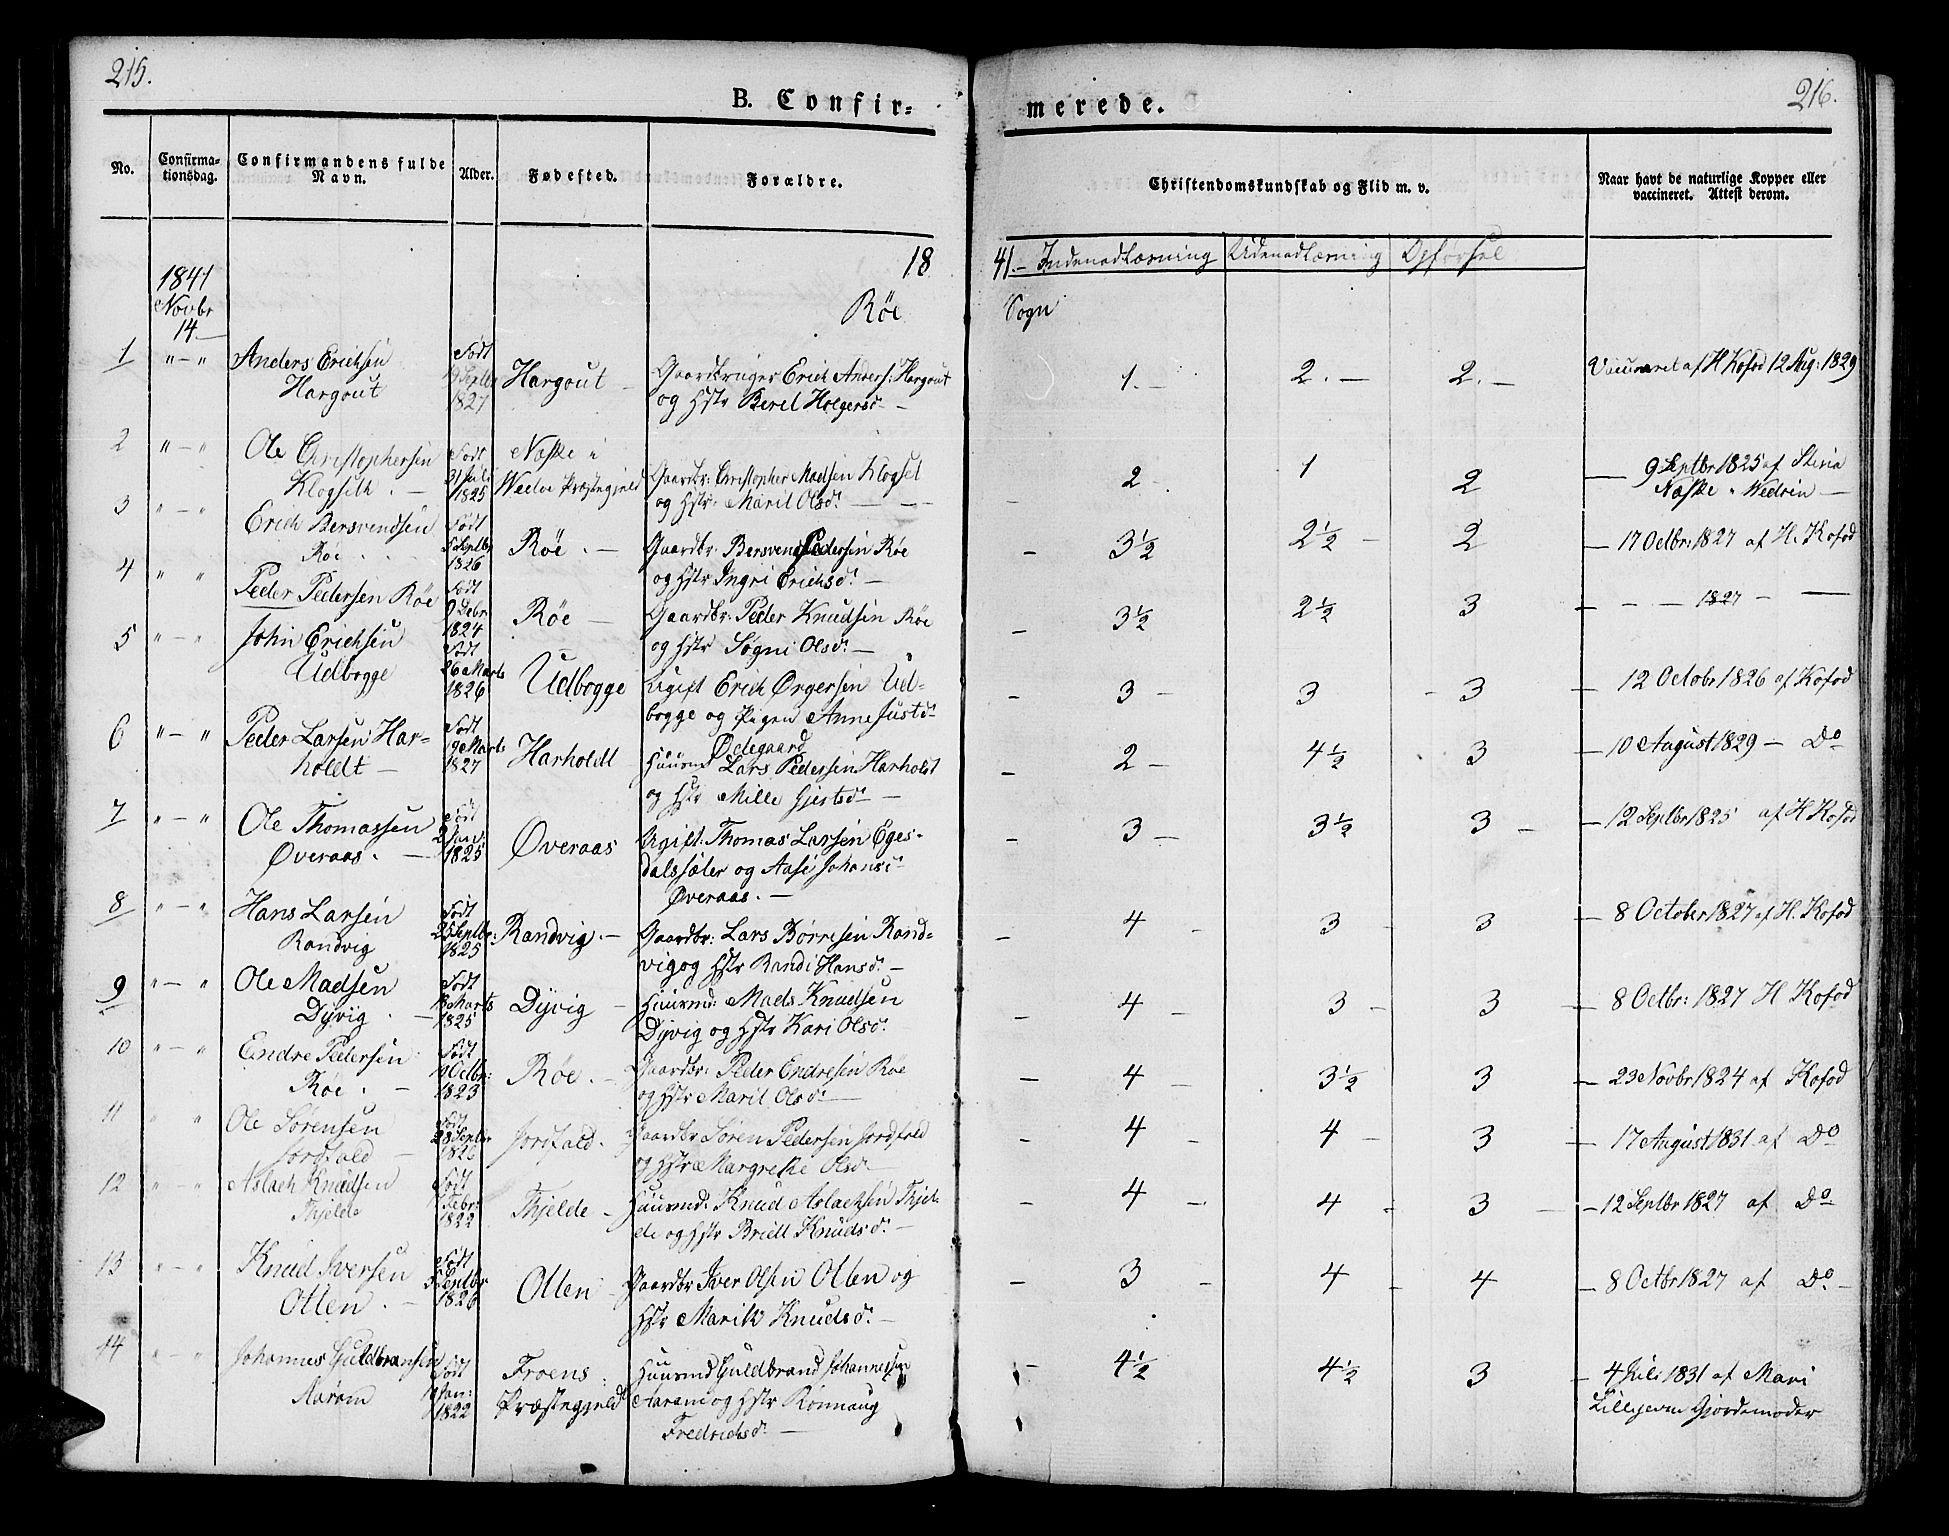 215.
216.
B. Confir-
merede.
No.
Confirma-
tionsdag.
Confirmandens fulde
Navn.
Alder.
Fødested.
Forældre.
Christendomskundskab og Flid m. v.
Naar havt de naturlige Kopper eller
vaccineret. Attest derom.
18
41.- Indenadlæsning Udenadlæsning Opførsel
1841
Novbr
14
Røe
Sogn
1 " - " Anders Erichsen
Hargout
Født
19 Septbr
1827
Hargout -
Gaardbruger Erich Anders: Hargout
og Hstr Beret Holgersd -
1. - 2. - 2. -
Vaccineret af H Kofod 12 Aug: 1829
2 " - " Ole Christophersen
Klogseth. -
Født
31 Juli
1825
Næste i
Wedøe Præstegjeld
Gaardbr: Christopher Madsen Klogset
og Hstr: Marit Olsd: -
- 2 - 1 2
- 9 Septbr 1825 af Stina
Næste i Wedøen -
3 " - " Erich Bersvendsen
Røe
Født
5 Septbr
1826
Røe. -
Gaardbr: Bersvend Pedersen Røe
og Hstr Ingri Erichsd: -
- 3½ 2½ - 2
- 17 Octbr: 1827 af H. Kofod
4 " " Peder Pedersen Røe
Født
9 Debr
1824
Røe -
Gaardbr: Peder Knudsen Røe
og Hstr Søgni Olsd: -
- 3½ 2½ 3
- - - 1827 - -
5 " - " John Erichsen
Udbogge
Født
26 Marts
1826
Udbogge
Ugift Erich Ørgersen Ud-
bogge og Pigen Anne Justsd:
Ødegaard
- 3 - 3 - 3
- 12 Octobr 1826 af Kofod
6 " - " Peder Larsen Har-
holdt -
Født
19 Marts
1827
Harholdt
Huusmd Lars Pedersen Harholdt
og Hstr Mille Gjertsd: -
- 2 - 4½ 3
- 10 August 1829 - Do
7 " - " Ole Thomassen
Øveraas. -
Født
2 Jan
1825
Øveraas
Ugift: Thomas Larsen Eges-
dalssæter og Aase Johansd:
Øveraas. -
- 3 - 3½ 3 -
- 12 Septbr 1825 af H Kofod
8 " - " Hans Larsen
Randvig
Født
25 Septbr:
1825
Randvig. -
Gaardbr: Lars Børresen Rand-
vig og Hstr Randi Hansd: -
- 4 - 3 3
- 8 October 1827 af H. Kofod
9 " - " Ole Madsen
Dyvig. -
Født
18 Marts
1825
Dyvig -
Huusmd: Mads Knudsen
Dyvig og Hstr Kari Olsd:
- 4 - 3 - 3
- 8 Octbr: 1827 H Kofod
10 " - " Endre Pedersen
Røe. -
Født
10 Octbr:
1823
Røe. -
Gaardbr: Peder Endresen Røe
og Hstr Marit Olsd: -
- 4 - 3½ 3
- 23 Novbr 1824 af Kofod
11 " " Ole Sørensen
Jordfald -
Født
28 Septbr
1826
Jordfald.
Gaardbr Søren Pedersen Jordfald
og Hstr Margrethe Olsd: -
- 4 - 4 - 3
- 17 August 1831 af Do
12 " - " Aslach Knudsen
Thjelde
Født
Febr:
1822
Thjelde -
Huusmd: Knud Aslachsen Thjel-
de og Hstr Britt Knudsd: -
- 4 - 4 - 3 -
- 12 Septbr 1827 af Do
13 " - " Knud Iversen
Otten. -
Født
5 Septbr
1826
Otten -
Gaardbr Iver Olsen Otten og
Hstr Marith Knudsd: -
- 3 - 4 - 4
- 8 Octbr 1827 af Do -
14 " - " Johannes Guldbransen
Aarøm
Født
Jan:
1822
Froens
Præstegjeld
Huusmd Guldbrand Johannessen
Aarøm og Hstr Rønnaug
Fredrichsd: -
- 4½ 4½ 3
- 4 Juli 1831 af Mari
Lillejevn Gjordemoder